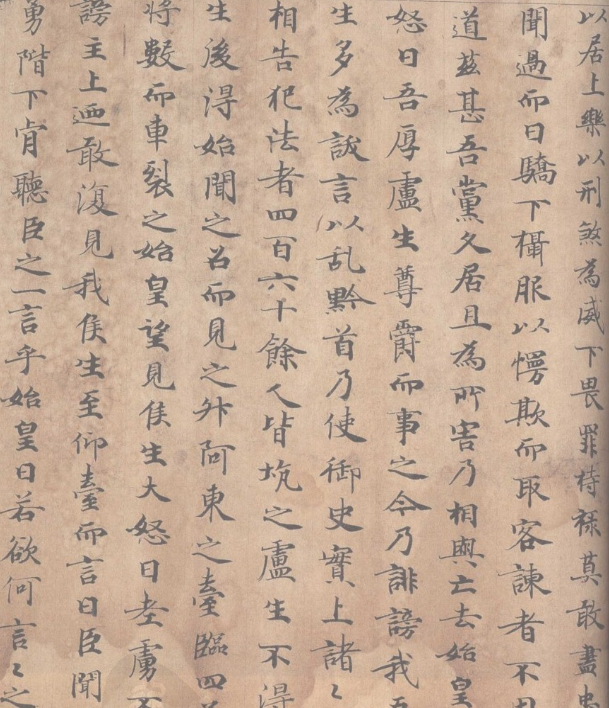 以居上樂以刑煞為威下畏罪持祿莫敢盡忠
聞過而日驕下欇服以慢欺而取容諫者不用
道茲甚吾黨久居且為所害乃相與亡去始皇
怒曰吾厚盧生尊爵而事之今乃誹謗我吾
生多為訞言以乱黔首乃使御史實上諸〻
相告犯法者四百六十餘人皆坑之盧生不淂
生後淂始聞之召而見之升阿東之臺臨四
将數而車裂之始皇望見侯生大怒曰老虜不
謗主上迺敢復見我侯生至仰臺而言曰臣聞
勇階下肯聽臣之一言乎始皇曰若欲何言〻之